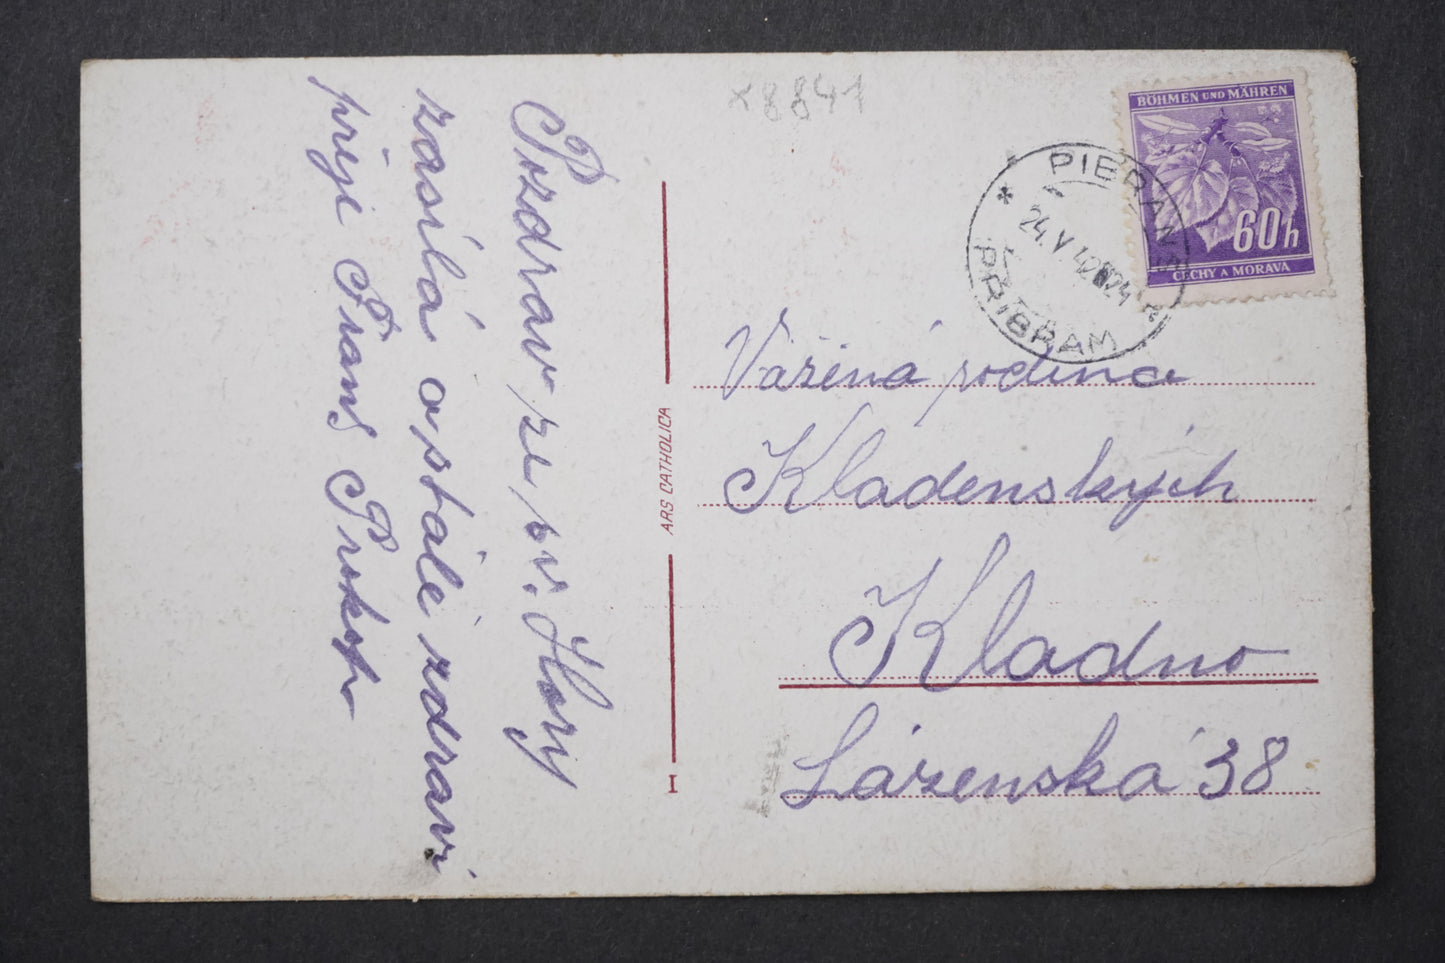 x8841
BÖHMEN UND MÄHREN
60h
ČECHY A MORAVA
PIBRANS
24. V 42
PŘÍBRAM
Pozdrav ze sv. Hory
zasílá a stálé zdraví
přeje Frant Prokop
ARS CATHOLICA
Vážená rodina
Kladenských
Kladno
Lázenská 38